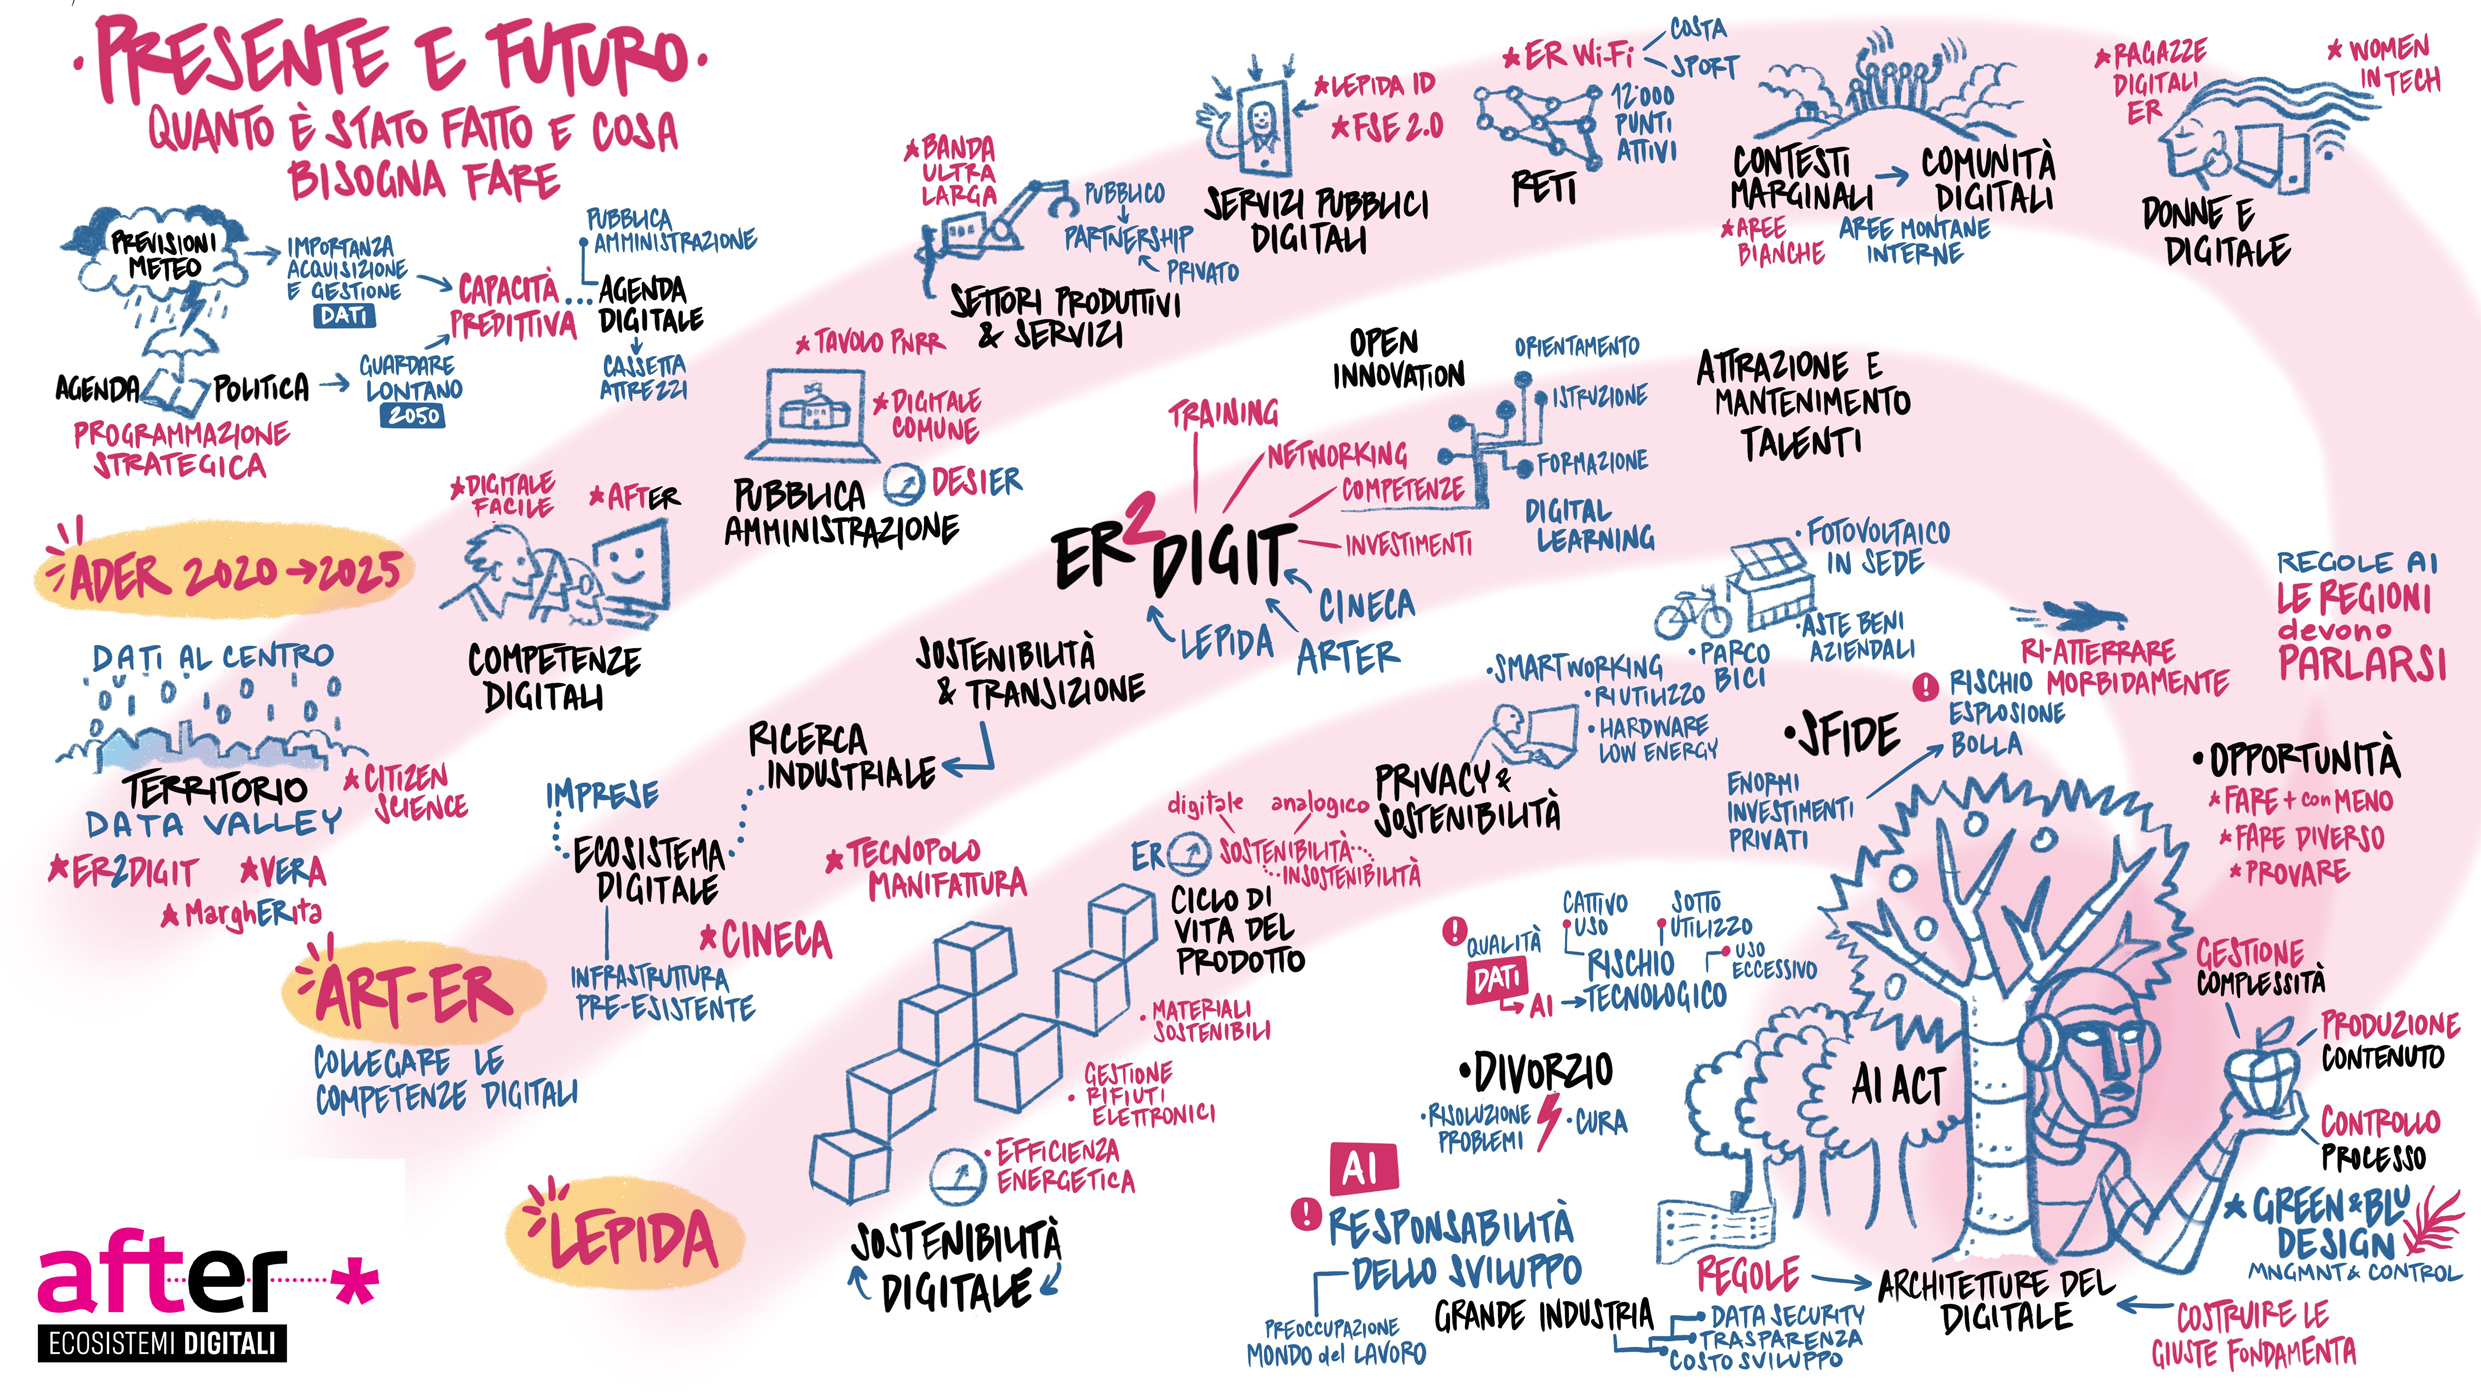 ·PRESENTE E FUTURO·
QUANTO È STATO FATTO E COSA
BISOGNA FARE
PREVISIONI
METEO
IMPORTANZA
ACQUISIZIONE
E GESTIONE
DATI
AGENDA POLITICA
PROGRAMMAZIONE
STRATEGICA
GUARDARE
LONTANO
2050
CAPACITÀ
PREDITTIVA
PUBBLICA
AMMINISTRAZIONE
AGENDA
DIGITALE
CASSETTA
ATTREZZI
ADER 2020→2025
DATI AL CENTRO
TERRITORIO
DATA VALLEY
*CITIZEN
SCIENCE
*ER2DIGIT
*VERA
*MarghERita
*DIGITALE
FACILE
*AFTER
COMPETENZE
DIGITALI
*TAVOLO PNRR
*DIGITALE
COMUNE
DESIER
PUBBLICA
AMMINISTRAZIONE
*BANDA
ULTRA
LARGA
PUBBLICO
PARTNERSHIP
PRIVATO
SETTORI PRODUTTIVI
& SERVIZI
*LEPIDA ID
*FSE 2.0
SERVIZI PUBBLICI
DIGITALI
*ER Wi-Fi
COSTA
SPORT
12'000
PUNTI
ATTIVI
RETI
CONTESTI
MARGINALI
*AREE
BIANCHE
COMUNITÀ
DIGITALI
AREE MONTANE
INTERNE
*RAGAZZE
DIGITALI
ER
*WOMEN
IN TECH
DONNE E
DIGITALE
ART-ER
COLLEGARE LE
COMPETENZE DIGITALI
IMPRESE
ECOSISTEMA
DIGITALE
INFRASTRUTTURA
PRE-ESISTENTE
RICERCA
INDUSTRIALE
SOSTENIBILITÀ
& TRANSIZIONE
*CINECA
*TECNOPOLO
MANIFATTURA
ER2DIGIT
TRAINING
NETWORKING
COMPETENZE
INVESTIMENTI
CINECA
ARTER
LEPIDA
OPEN
INNOVATION
ORIENTAMENTO
ISTRUZIONE
FORMAZIONE
DIGITAL
LEARNING
ATTRAZIONE E
MANTENIMENTO
TALENTI
LEPIDA
SOSTENIBILITÀ
DIGITALE
·EFFICIENZA
ENERGETICA
GESTIONE
·RIFIUTI
ELETTRONICI
·MATERIALI
SOSTENIBILI
CICLO DI
VITA DEL
PRODOTTO
ER
digitale analogico
SOSTENIBILITÀ
INSOSTENIBILITÀ
PRIVACY &
SOSTENIBILITÀ
·SMARTWORKING
·RIUTILIZZO
·HARDWARE
LOW ENERGY
·PARCO
BICI
·FOTOVOLTAICO
IN SEDE
·ASTE BENI
AZIENDALI
·SFIDE
! RISCHIO
ESPLOSIONE
BOLLA
ENORMI
INVESTIMENTI
PRIVATI
RI-ATTERRARE
MORBIDAMENTE
REGOLE AI
LE REGIONI
devono
PARLARSI
·OPPORTUNITÀ
*FARE + con MENO
*FARE DIVERSO
*PROVARE
! QUALITÀ
DATI
AI
RISCHIO
TECNOLOGICO
CATTIVO
USO
SOTTO
UTILIZZO
USO
ECCESSIVO
·DIVORZIO
·RISOLUZIONE
PROBLEMI
·CURA
AI
! RESPONSABILITÀ
DELLO SVILUPPO
PREOCCUPAZIONE
MONDO del LAVORO
GRANDE INDUSTRIA
DATA SECURITY
TRASPARENZA
COSTO SVILUPPO
AI ACT
REGOLE
ARCHITETTURE DEL
DIGITALE
COSTRUIRE LE
GIUSTE FONDAMENTA
GESTIONE
COMPLESSITÀ
PRODUZIONE
CONTENUTO
CONTROLLO
PROCESSO
*GREEN & BLU
DESIGN
MNGMNT & CONTROL
after*
ECOSISTEMI DIGITALI